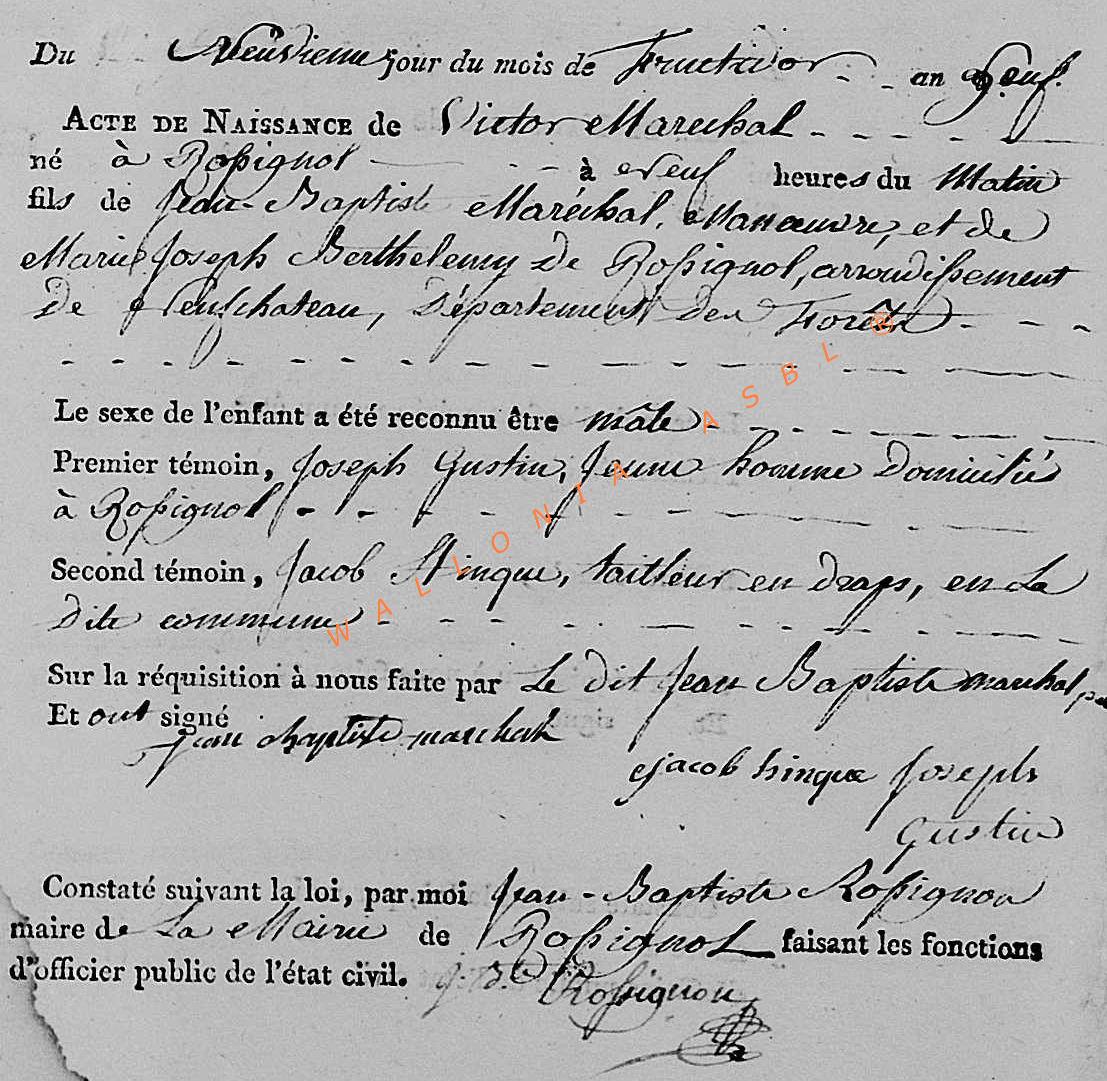 Du Neuvieme jour du mois de Fructidor - - an Neuf.
ACTE DE NAISSANCE de Victor Marechal - - - -
né à Rossignol - - - à Neuf heures du Matin
fils de Jean-Baptiste Maréchal, Manœuvre, et de
Marie Joseph Berthelemy de Rossignol, arrondissement
de Neufchateau, Département des Forêts - - -
Le sexe de l'enfant a été reconnu être mâle - - - -
Premier témoin, Joseph Gustin, Jeune homme domicilié
à Rossignol - - - -
Second témoin, Jacob Hinque, tailleur en draps, en La
dite commune - - - -
Sur la réquisition à nous faite par Le dit Jean Baptiste marechal,
Et ont signé
jean baptiste marechal
jacob hinque Joseph
Gustin
Constaté suivant la loi, par moi Jean-Baptiste Rossignon
maire de La Mairie de Rossignol faisant les fonctions
d'officier public de l'état civil. J. B. Rossignon
WALLONIA ASBL ®